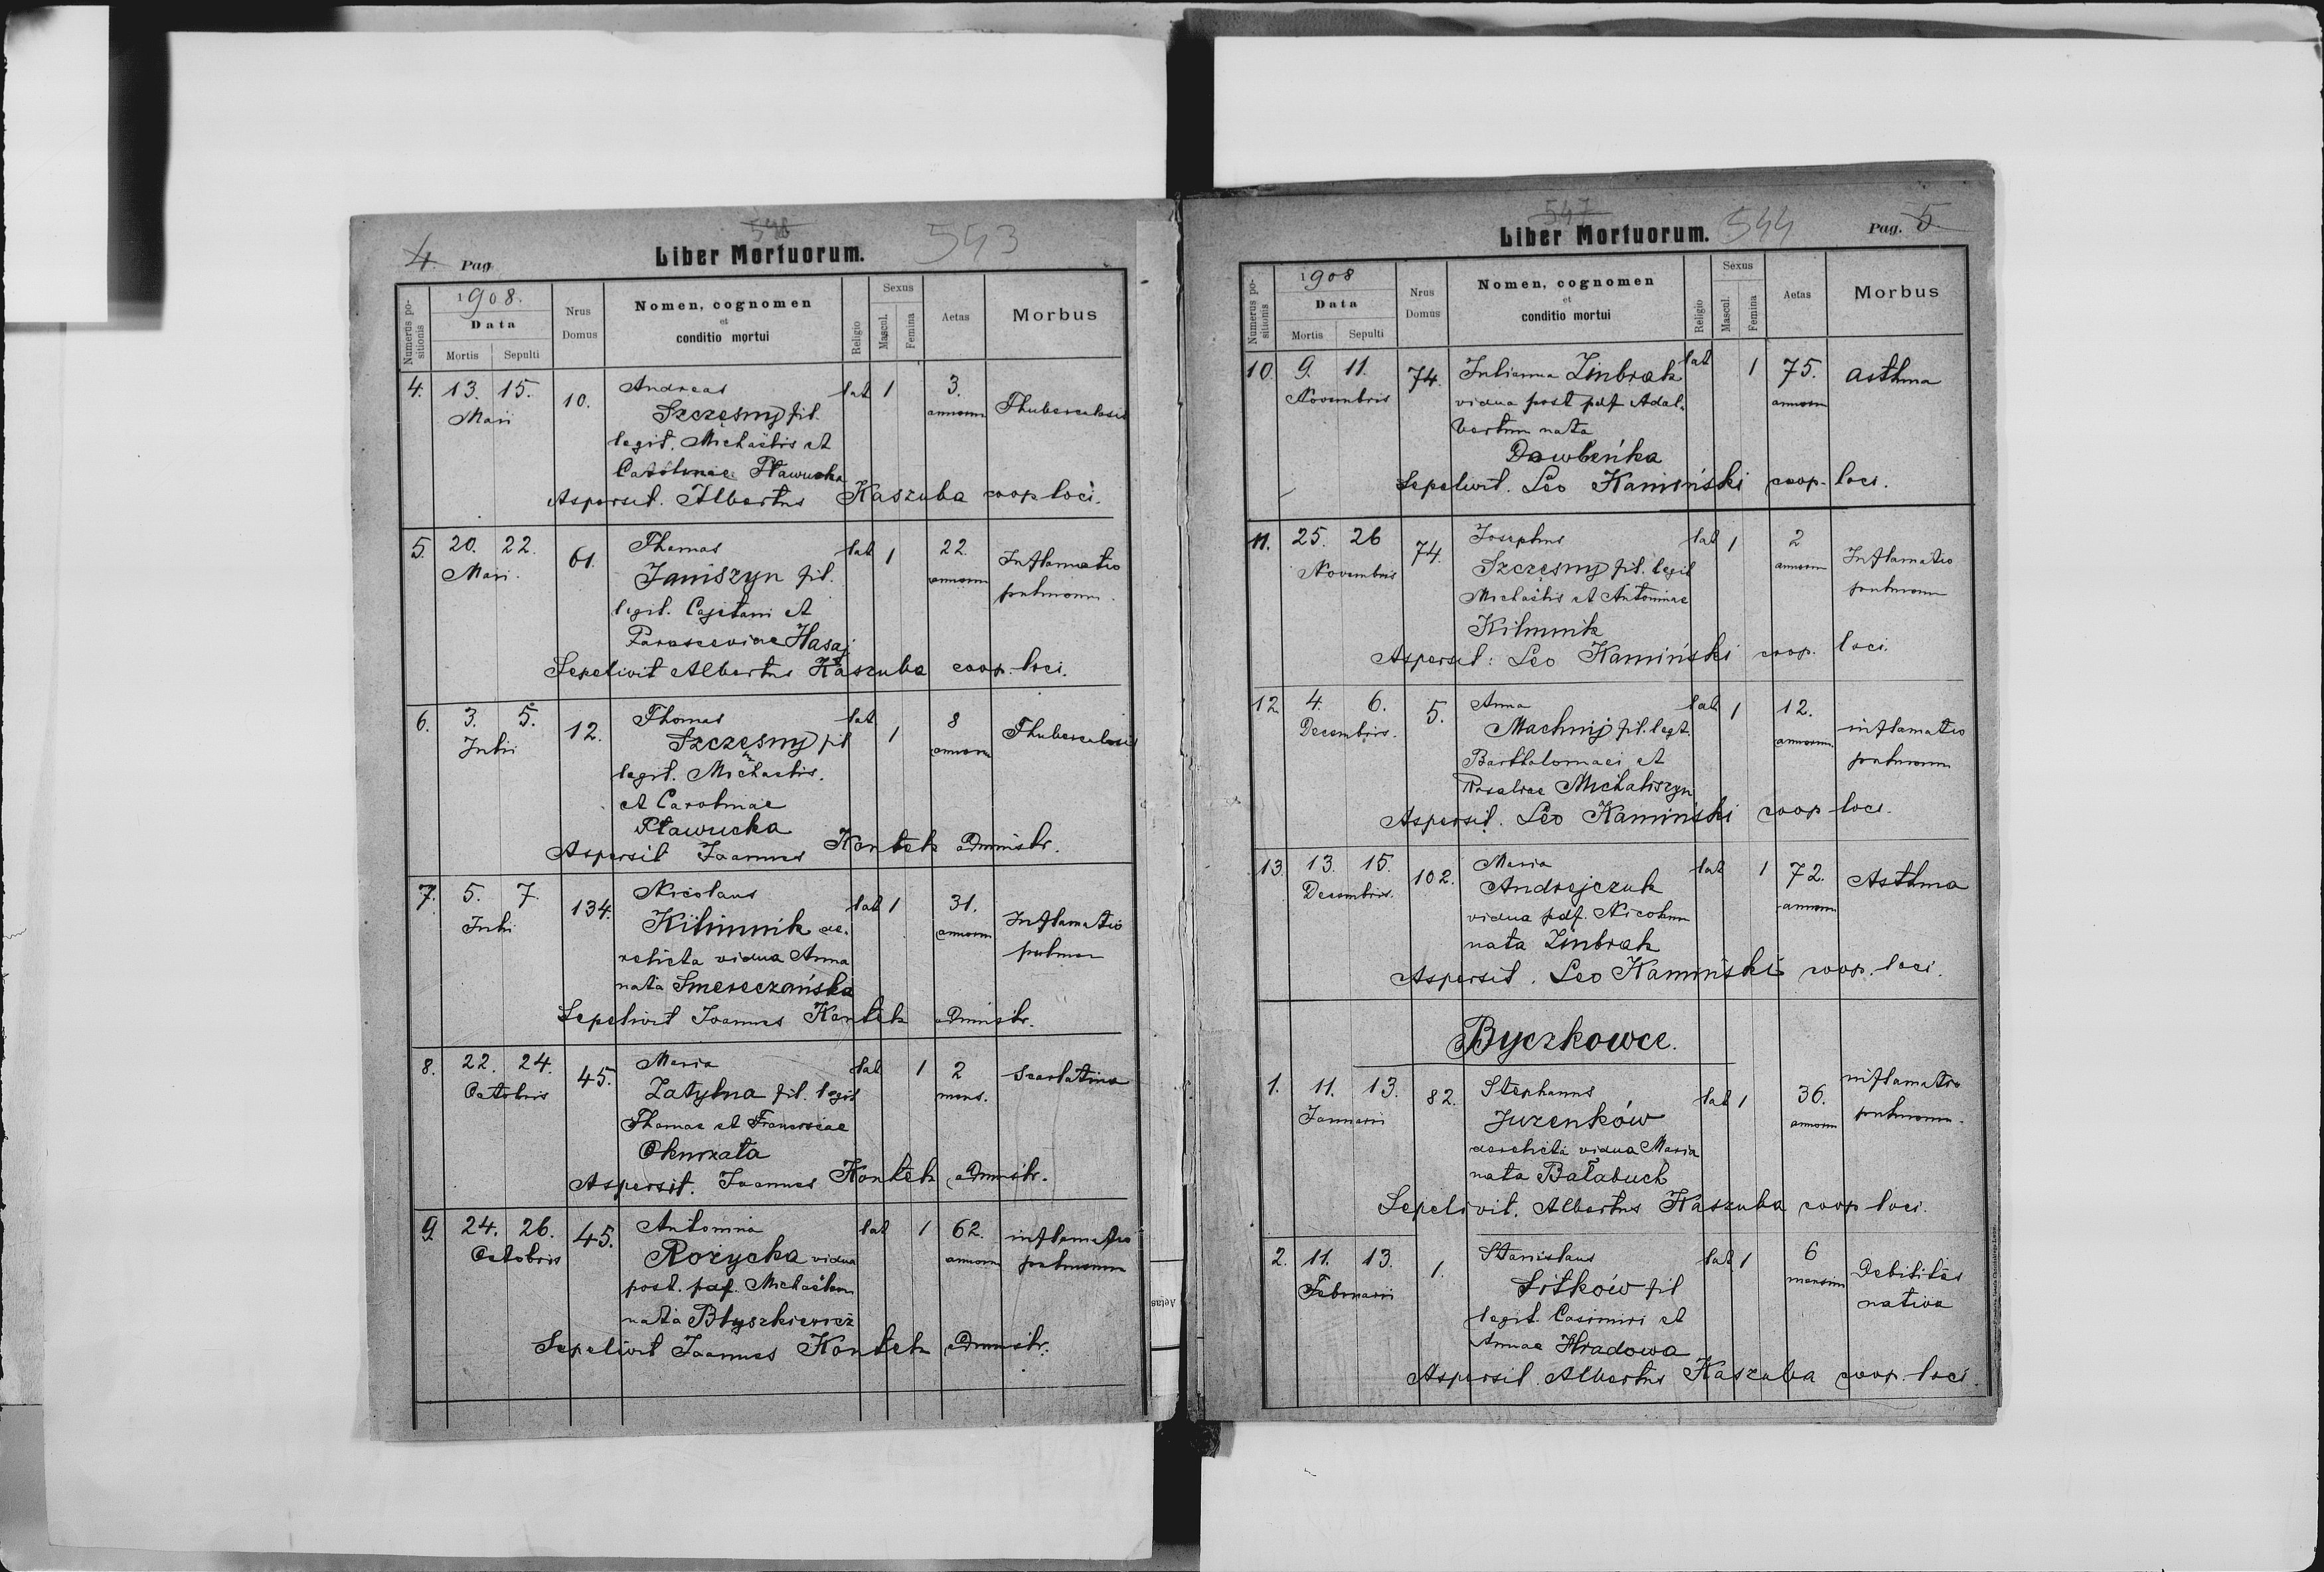 4. Pag.
546
Liber Mortuorum.
543
Numerus positionis
1908.
Data
Mortis Sepulti
Nrus Domus
Nomen, cognomen
et
conditio mortui
Religio
Sexus
Mascul.
Femina
Aetas
Morbus
4. 13. 15. 10. Andreas lat 1 3. Thuberculosis
Maii Szczęsny fil. annorum
legit. Michaëlis et
Carolinae Pławucka
Aspersit. Albertus Kaszuba coop loci.
5. 20. 22. 61. Thomas lat 1 22. Inflamatio
Maii. Janiszyn fil. annorum pulmonum.
legit. Cajetani et
Parasceviae Hasaj
Sepelivit Albertus Kaszuba coop. loci.
6. 3. 5. 12. Thomas lat 1 8 Thuberculosis
Julii Szczęsny fil annorum
legit. Michaelis.
et Carolinae
Pławucka
Aspersit Joannes Kontek administr.
7. 5. 7. 134. Nicolaus lat 1 31. Inflamatio
Julii Kilimnik de. annorum pulmon
relicta vidua Anna
nata Smereczańska
Sepelivit Joannes Kontek administr.
8. 22. 24. 45. Maria lat 1 2 Scarlatina
Octobris Zatylna fil. legit mens.
Thomae et Franciscae
Aspersit. Joannes Kontek administr.
9. 24. 26. 45. Antonina lat 1 62. inflamatio
Octobris Rożycka vidua annorum pulmonum
post. pdf. Michaëlem
nata Błyszkiewicz
Sepelivit Joannes Kontek administr.
Aetas
547
Liber Mortuorum.
544
Pag. 5
Numerus positionis
1908
Data
Mortis Sepulti
Nrus Domus
Nomen, cognomen
et
conditio mortui
Religio
Sexus
Mascul.
Femina
Aetas
Morbus
10. 9. 11. 74. Julianna Zinbrak lat 1 75. asthma
Novembris vidua post pdf Adal- annorum
bertum nata
Dowbeńka
Sepelivit. Leo Kamiński coop. loci.
11. 25. 26 74. Josephus lat 1 2 Inflamatio
Novembris Szczęsny fil. legit annorum pulmonum
Michaëlis et Antoninae
Kilimnik
Aspersit: Leo Kamiński coop. loci.
12. 4. 6. 5. Anna lat 1 12. inflamatio
Decembris. Machnij fil. legt. annorum. pulmonum
Barthalomaei et
Rosaliae Michaliszyn
Aspersit. Leo Kamiński coop loci.
13. 13. 15. 102. Maria lat 1 72. Asthma
Decembris. Andrejczuk annorum
vidua pdf. Nicolaum
nata Zinbrak
Aspersit. Leo Kamiński coop. loci.
Byczkowce.
1. 11. 13. 82. Stephanus lat 1 36. inflamatio
Januarii Juzenków annorum pulmonum.
derelicta vidua Maria
nata Bałabuch
Sepelivit. Albertus Kaszuba coop loci.
2. 11. 13. 1. Stanislaus lat 1 6 Debilitas
Februarii Sitków fil mensium nativa
legit. Casimiri et
Annae Hradowa
Aspersit Albertus Kaszuba coop. loci.